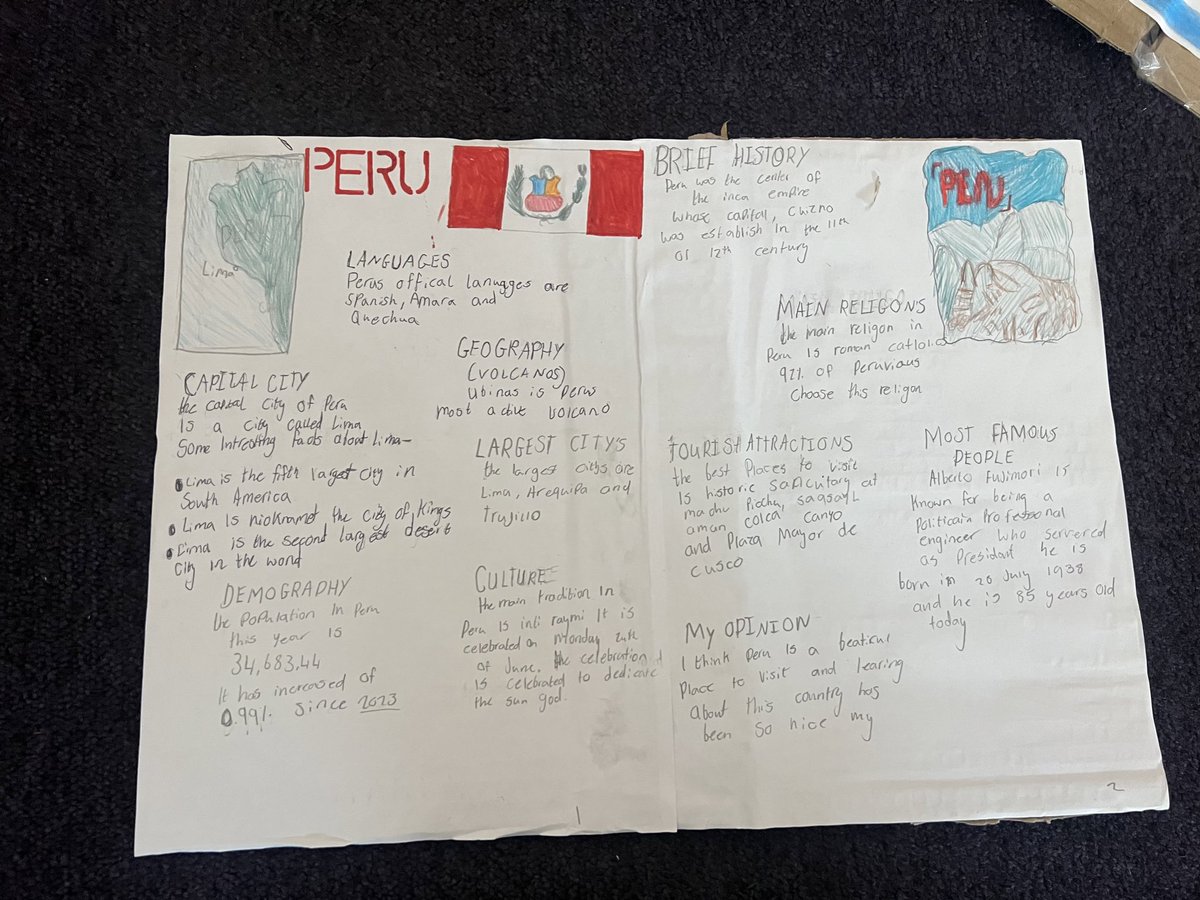 PERU
Lima
LANGUAGES
Perus offical lanugges are
Spanish, Amara and
Quechua
GEOGRAPHY
(VOLCANOS)
Ubinas is Perus
most active volcano
CAPITAL CITY
the capital city of Peru
Is a city called Lima
Some Intresting facts about Lima-
Lima is the fifth largest city in
South America
Lima Is nicknamet the city of kings
Lima is the second largest desert
City in the world
LARGEST CITY'S
the largest citys are
Lima, Arequipa and
Trujillo
DEMOGRAPHY
the Population In Peru
this year is
34,683,44
It has increased of
0.99% since 2023
CULTURE
the main tradition In
Peru Is inti raymi It is
celebrated on Monday 24th
of June. the celebration
Is celebrated to dedicate
the sun god.
1
BRIEF HISTORY
Peru was the center of
the inca empire
whose capital, Chizno
was establish In the 11th
or 12th century
PERU
MAIN RELIGONS
the main religon in
Peru Is roman catlolic
92% of Peruvious
Choose this religon
TOURISH ATTRACTIONS
the best Places to visit
Is historic sancuitary at
machu Picchu, saqsayl
aman, colca canyo
and Plaza Mayor de
cusco
MOST FAMOUS
PEOPLE
Alberto Fujimori is
Known for being a
Politicain Professonal
engineer who servered
as President he is
born in 28 July 1938
and he is 85 years old
today
MY OPINION
I think Peru Is a beatiful
Place to visit and learing
about this country has
been so nice my
2